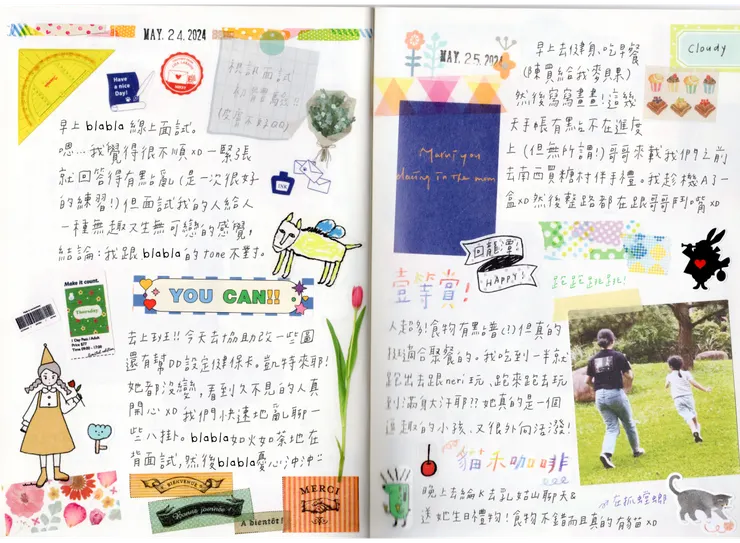 MAY. 24. 2024
Have
a nice
Day!
根訊面試
初體驗!!
早上 blabla 線上面試。
嗯... 我覺得很不順 XD 一緊張
就回答得有點亂 (是一次很好
的練習!) 但面試我的人給人
一種無趣又生無可戀的感覺,
結論: 我跟 blabla 的 tone 不對。
INK
YOU CAN!!
Make it count.
Thursday
去上班!! 今天去協助改一些圖
還有幫 DD 設定健保卡。凱特來耶!
她都沒變, 看到久不見的人真
開心 XD 我們快速地亂聊一
些八掛。blabla 如火如荼地在
背面試, 然後 blabla 憂心沖沖
BIENVENUE
Bonne journée!
A bientôt!
MERCI
MAY. 25. 2024
Cloudy
早上去健身、吃早餐
(陳買給我麥貝果)
然後寫寫畫畫! 這幾
天手帳有點不在進度
上 (但無所謂!) 哥哥來載我們之前
去南西買糖村伴手禮。我趁機A了一
盒 XD 然後整路都在跟哥哥鬥嘴 XD
dancing in the moon
回龍潭!
HAPPY!
跑跑跳跳!
壹等賞!
人超多! 食物有點譜(?) 但真的
挺適合聚餐的。我吃到一半就
跑出去跟 neri 玩、跑來跑去玩
到滿身大汗耶!? 她真的是一個
逗趣的小孩、又很外向活潑!
貓禾咖啡
晚上去綸K去乳姑山聊天&
送她生日禮物! 食物不錯而且真的有貓 XD
在抓蟑螂